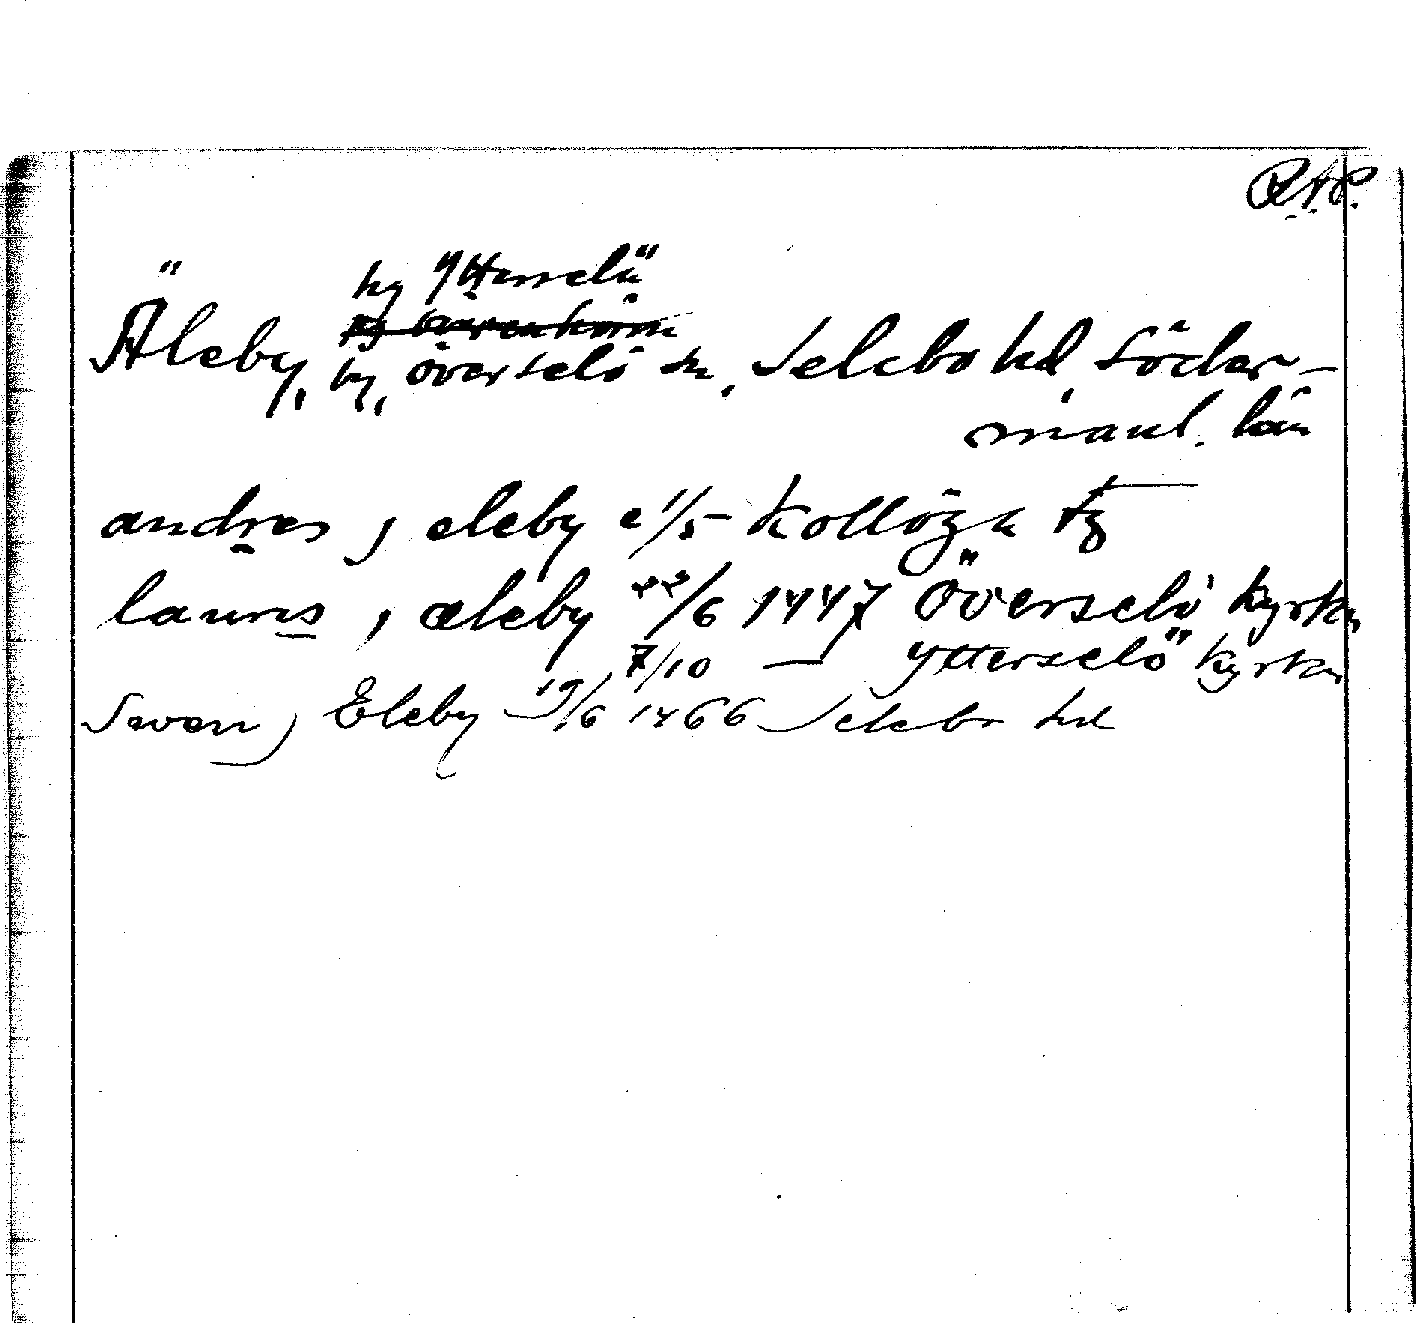 R.A.P.
by Ytterselö
Äleby, by, överselö sn, Selebo hd, Söder-
manl. län
andres j eleby e 1/5 Kollöga tg
lauris j æleby 22/6 1447 Överselö kyrka
7/10 — Ytterselö kyrka
Sven j Eleby 19/6 1466 Selebo hd